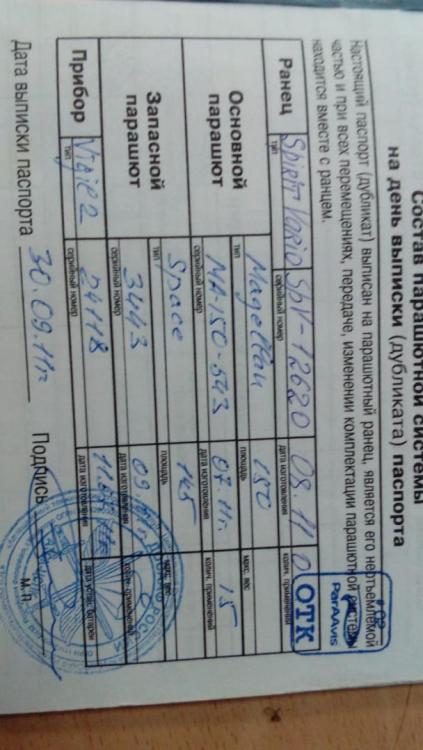 Состав парашютной системы
на день выписки (дубликата) паспорта
Настоящий паспорт (дубликат) выписан на парашютный ранец, является его неотъемлемой
частью и при всех перемещениях, передаче, изменении комплектации парашютной системы
находится вместе с ранцем.
ParAAvis
ОТК
Ранец Spirit Vario SpV-12620 08.11 0
тип серийный номер дата изготовления колич. применений
Основной парашют Magellan 150
тип площадь макс. вес
MA-150-543 07.11г. 15
серийный номер дата изготовления колич. применений
Запасной парашют Space 145
тип площадь макс. вес
3443 09.
серийный номер дата изготовления колич. применений
Прибор Vigil 2 24118
тип серийный номер дата изготовления дата устан. батареи
Дата выписки паспорта 30.09.11г Подпись
М.П.